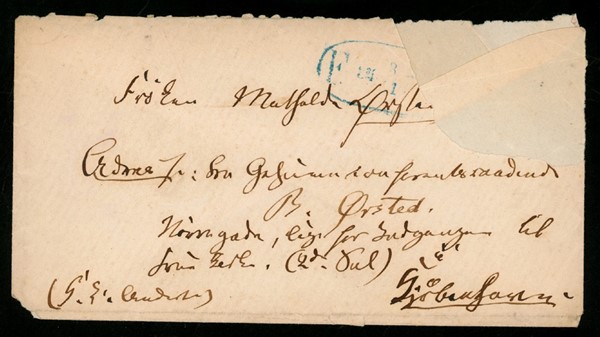 Fröken Mathilde Ørsted
Adresse: Fru Geheimeconferentsraadinde
B. Ørsted.
Nörregade, lige for Indgangen til
Frue Kirke. (2d. Sal)
Kjöbenhavn.